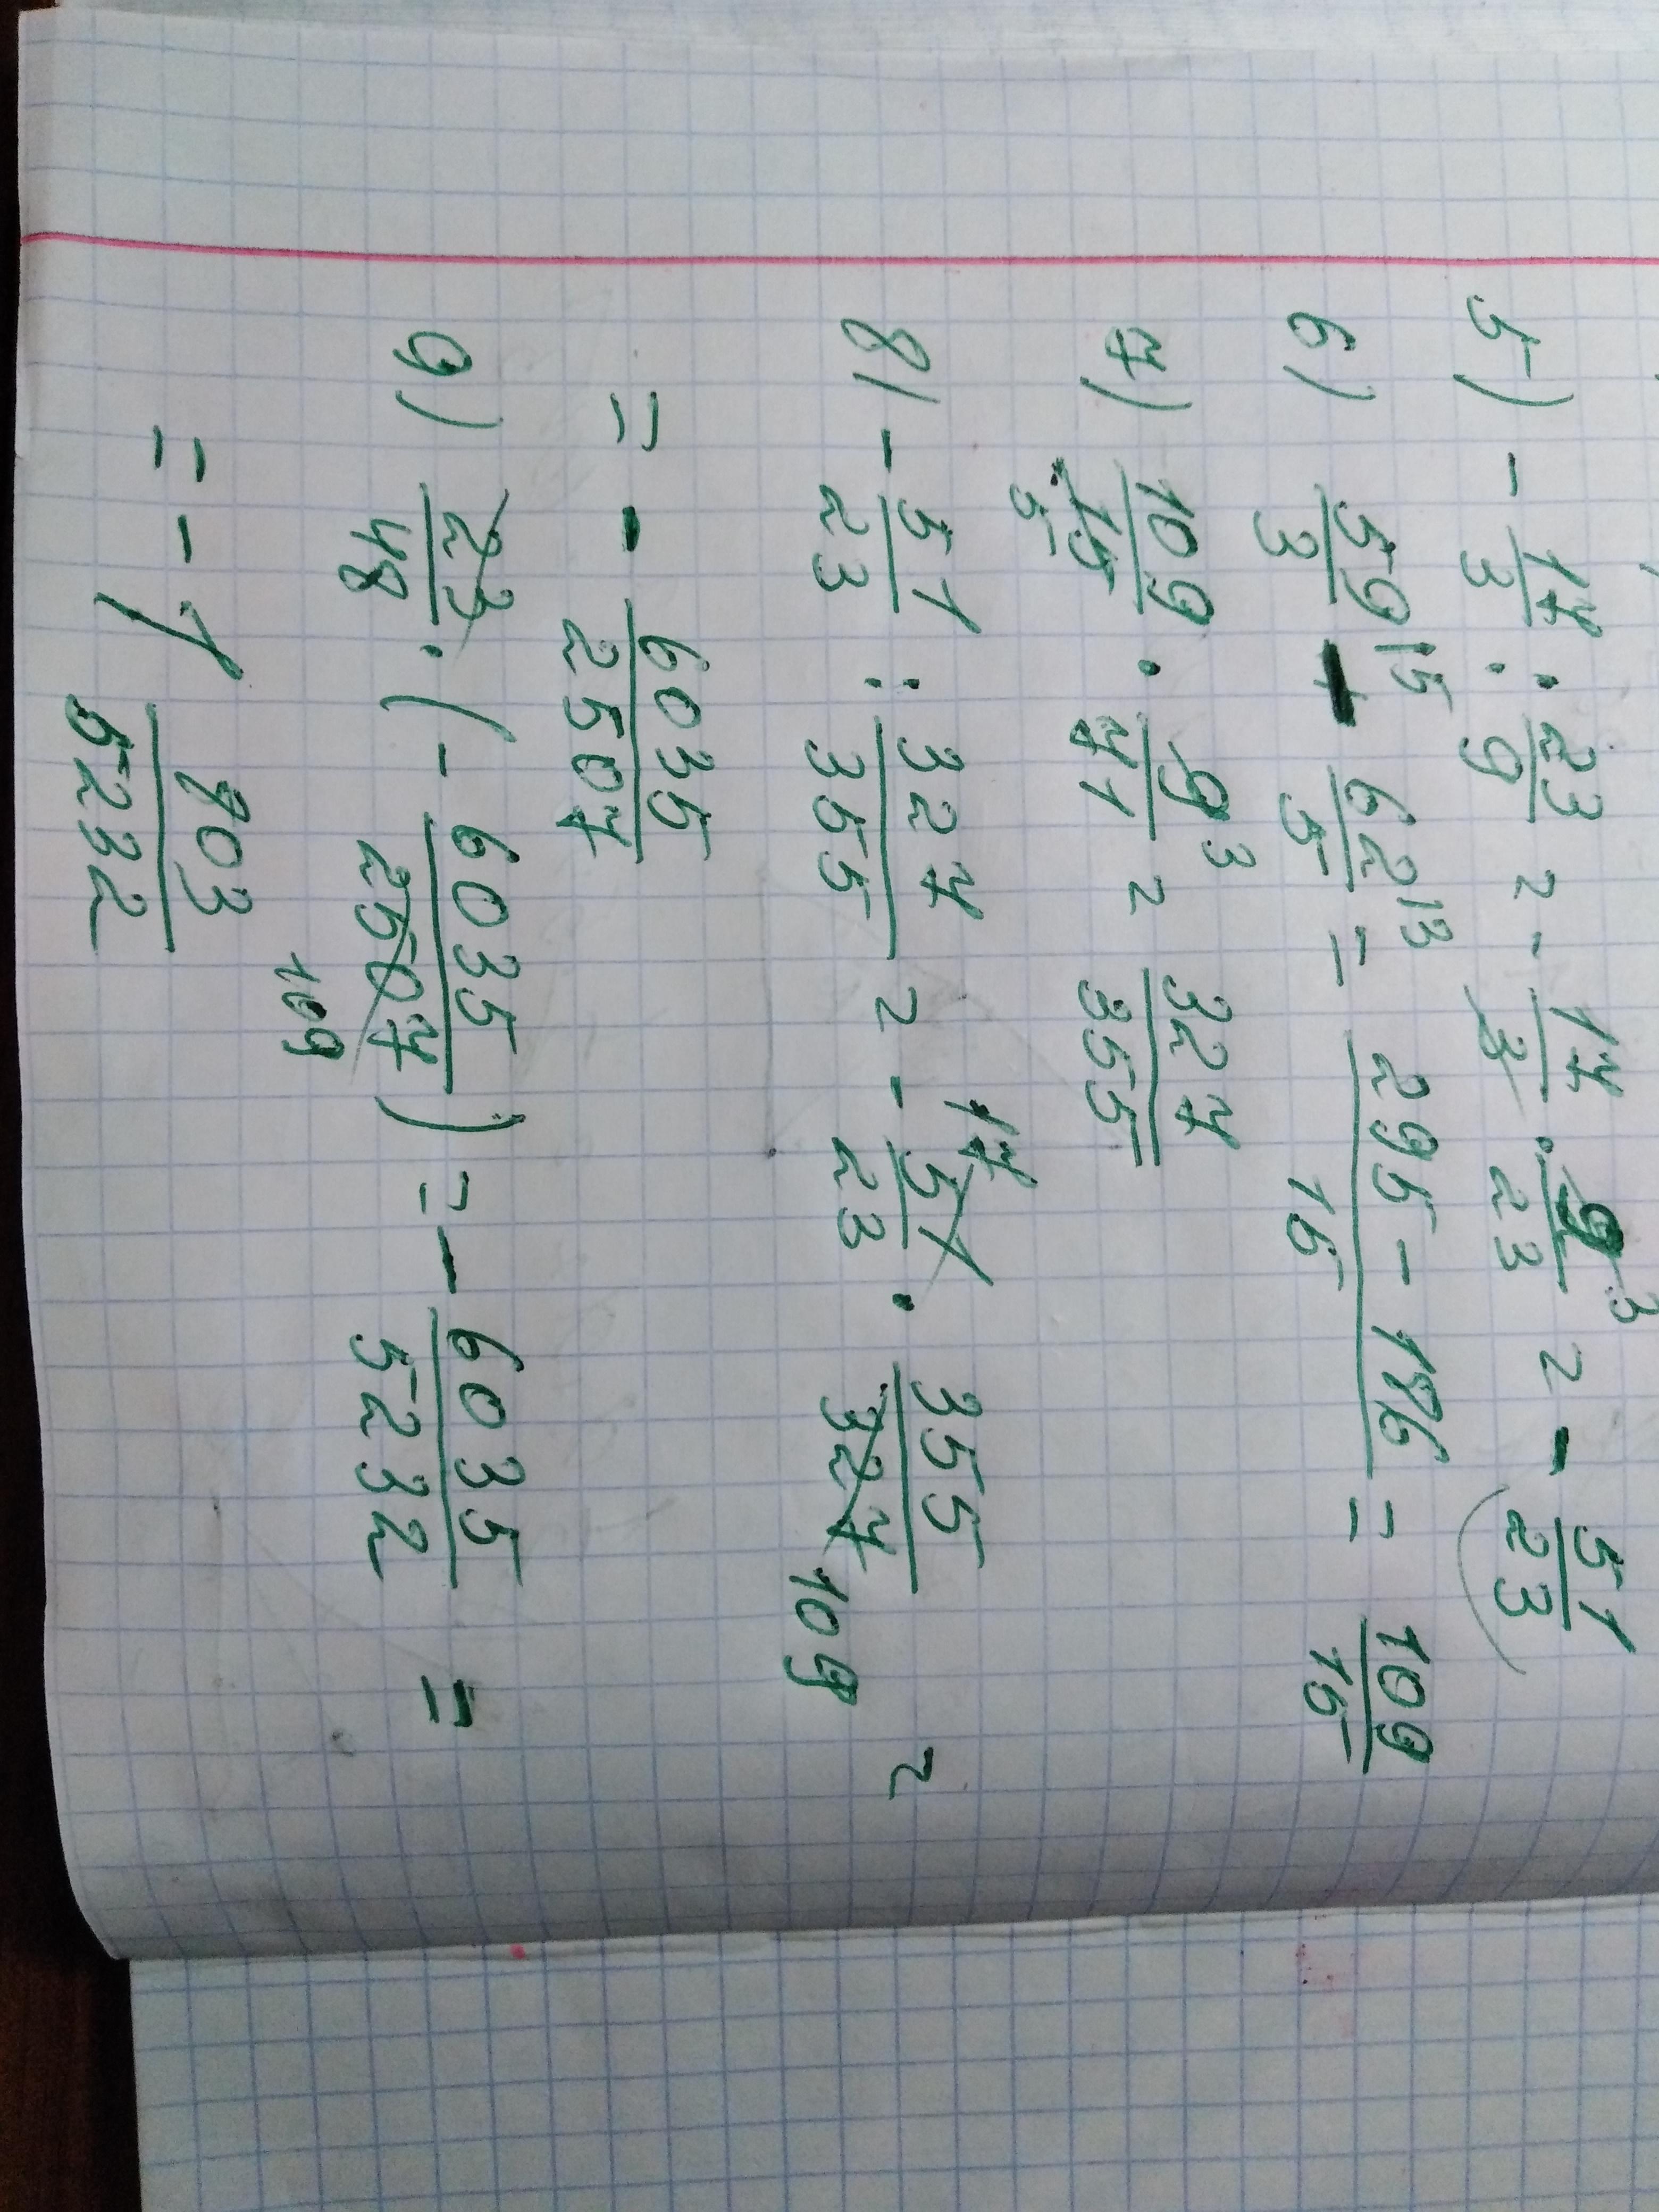 5) - 17/3 : 23/9 = - 17/3 · 9³/23 = - 51/23
6) 59/3 ¹⁵ - 62/5 ¹³ = 295 - 186/15 = 109/15
7) 109/15 5 · 9³/71 = 327/355
8) - 51/23 : 327/355 = - 17 51/23 · 355/327 109 =
= - 6035/2507
9) 23/48 · (- 6035/2507 109) = - 6035/5232 =
= - 1 803/5232